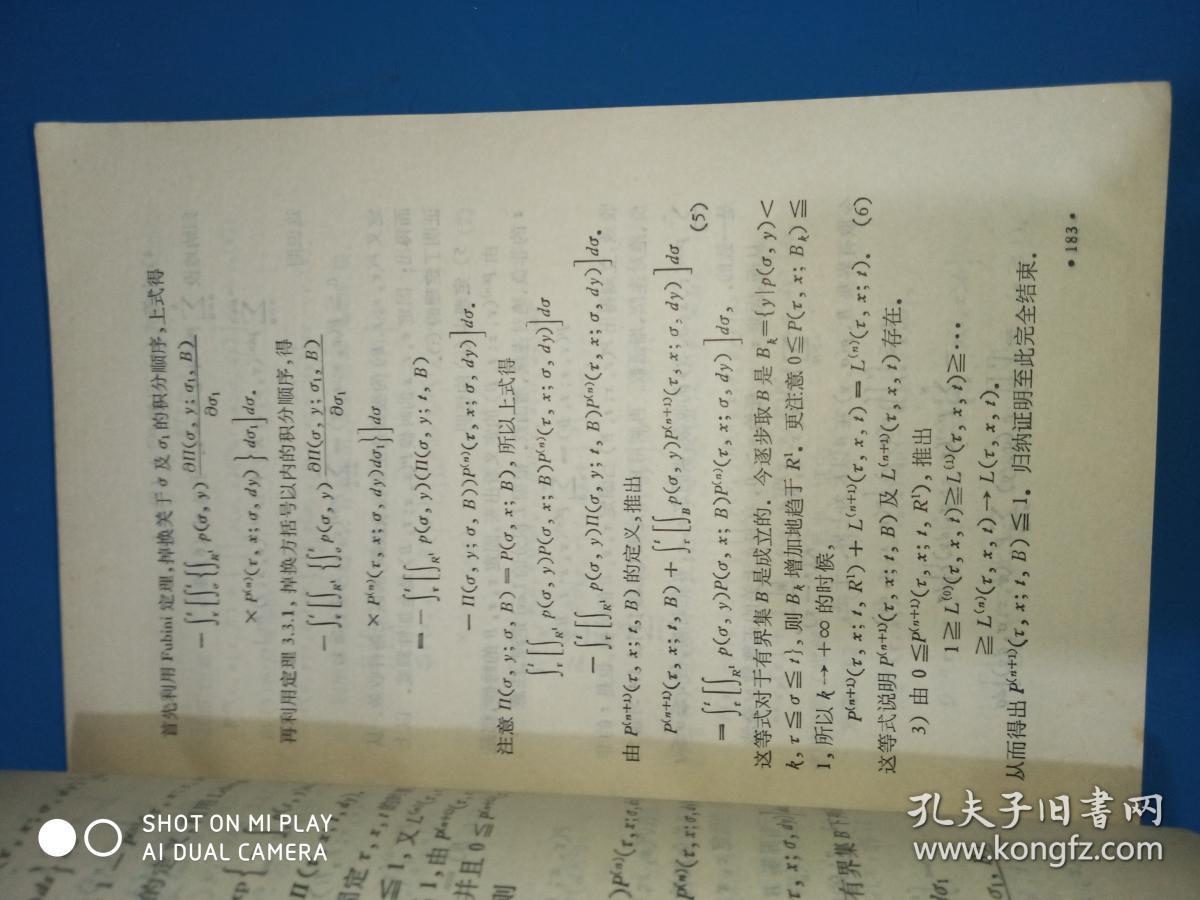 首先利用 Fubini 定理,掉换关于 σ 及 σ₁ 的积分顺序,上式得
−∫_τ^t [∫_σ^t {∫_{R¹} p(σ, y) ∂Π(σ, y; σ₁, B)/∂σ₁
× P⁽ⁿ⁾(τ, x; σ, dy)} dσ₁] dσ.
再利用定理 3.3.1, 掉换方括号以内的积分顺序,得
−∫_τ^t [∫_{R¹} {∫_σ^t p(σ, y) ∂Π(σ, y; σ₁, B)/∂σ₁
× P⁽ⁿ⁾(τ, x; σ, dy)dσ₁}] dσ
= −∫_τ^t [∫_{R¹} p(σ, y)(Π(σ, y; t, B)
− Π(σ, y; σ, B))P⁽ⁿ⁾(τ, x; σ, dy)] dσ.
注意 Π(σ, y; σ, B) = P(σ, x; B), 所以上式得
∫_τ^t [∫_{R¹} p(σ, y)P(σ, x; B)P⁽ⁿ⁾(τ, x; σ, dy)] dσ
−∫_τ^t [∫_{R¹} p(σ, y)Π(σ, y; t, B)P⁽ⁿ⁾(τ, x; σ, dy)] dσ.
由 P⁽ⁿ⁺¹⁾(τ, x; t, B) 的定义,推出
P⁽ⁿ⁺¹⁾(τ, x; t, B) + ∫_τ^t [∫_B p(σ, y)P⁽ⁿ⁺¹⁾(τ, x; σ, dy)] dσ
= ∫_τ^t [∫_{R¹} p(σ, y)P(σ, x; B)P⁽ⁿ⁾(τ, x; σ, dy)] dσ, (5)
这等式对于有界集 B 是成立的. 今逐步取 B 是 B_k = {y | p(σ, y) <
k, τ ≦ σ ≦ t}, 则 B_k 增加地趋于 R¹. 更注意 0 ≦ P(τ, x; B_k) ≦
1, 所以 k → +∞ 的时候,
P⁽ⁿ⁺¹⁾(τ, x; t, R¹) + L⁽ⁿ⁺¹⁾(τ, x, t) = L⁽ⁿ⁾(τ, x; t). (6)
这等式说明 P⁽ⁿ⁺¹⁾(τ, x; t, B) 及 L⁽ⁿ⁺¹⁾(τ, x, t) 存在.
3) 由 0 ≦ P⁽ⁿ⁺¹⁾(τ, x; t, R¹), 推出
1 ≧ L⁽⁰⁾(τ, x, t) ≧ L⁽¹⁾(τ, x, t) ≧ ···
≧ L⁽ⁿ⁾(τ, x, t) → L(τ, x, t).
从而得出 P⁽ⁿ⁺¹⁾(τ, x; t, B) ≦ 1. 归纳证明至此完全结束.
• 183 •
SHOT ON MI PLAY
AI DUAL CAMERA
孔夫子旧书网
www.kongfz.com